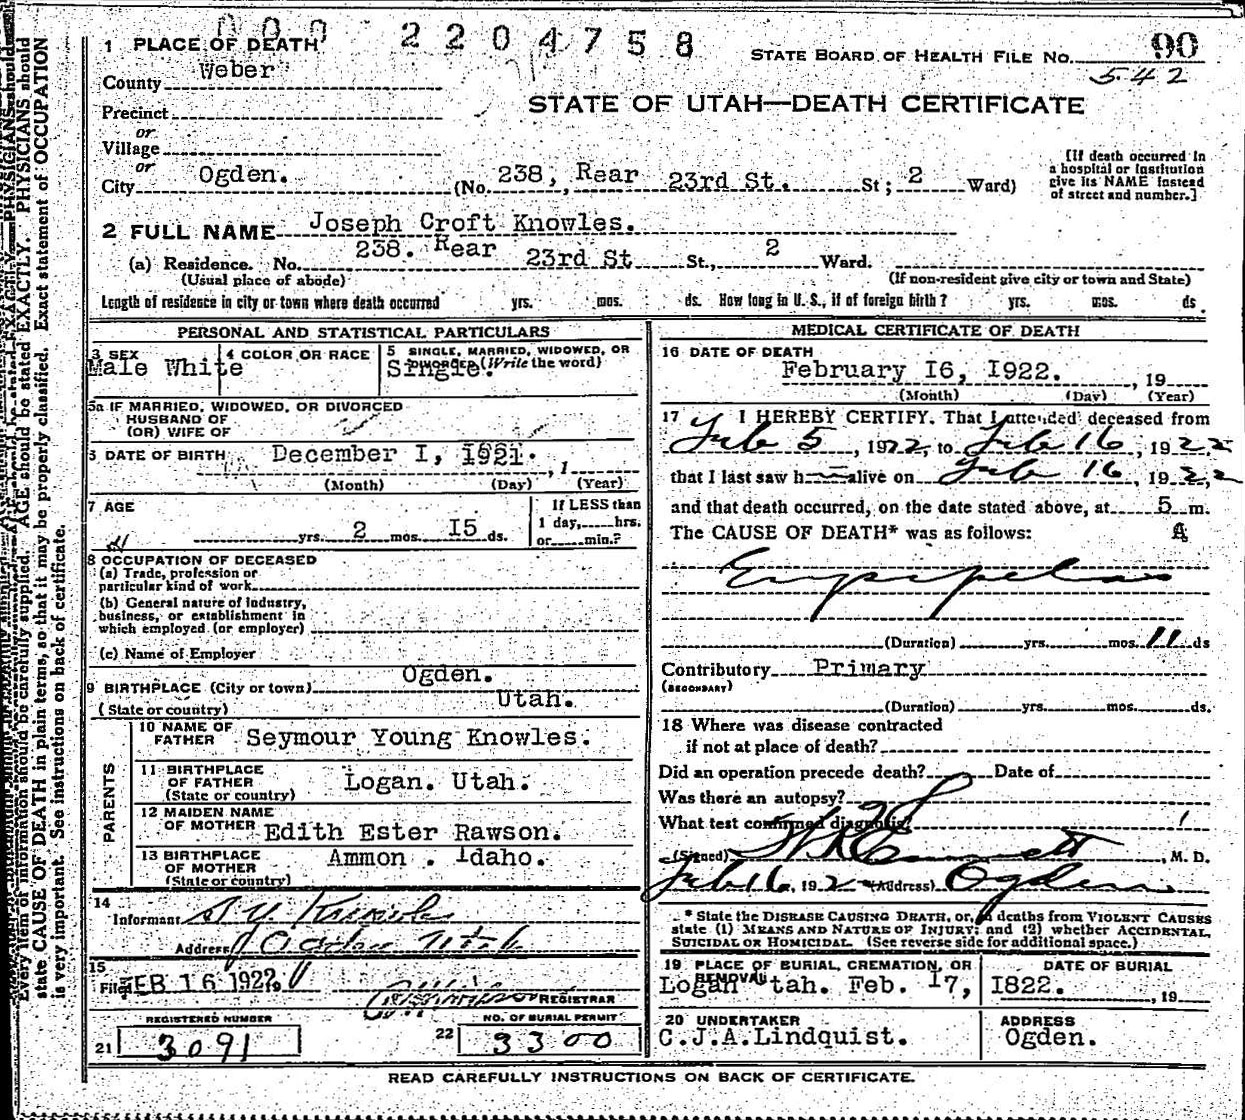 2204758
1 PLACE OF DEATH
STATE BOARD OF HEALTH FILE NO. 90
County Weber
542
STATE OF UTAH—DEATH CERTIFICATE
Precinct
or
Village
or
City Ogden. (No. 238, Rear 23rd St. St; 2 Ward)
[If death occurred in
a hospital or institution
give its NAME instead
of street and number.]
2 FULL NAME Joseph Croft Knowles.
(a) Residence. No. 238. Rear 23rd St St., 2 Ward.
(Usual place of abode) (If non-resident give city or town and State)
Length of residence in city or town where death occurred yrs. mos. ds. How long in U. S., if of foreign birth? yrs. mos. ds.
PERSONAL AND STATISTICAL PARTICULARS
3 SEX 4 COLOR OR RACE 5 SINGLE, MARRIED, WIDOWED, OR
DIVORCED (Write the word)
Male White Single.
5a IF MARRIED, WIDOWED, OR DIVORCED
HUSBAND OF
(OR) WIFE OF
6 DATE OF BIRTH December I, 1921. , 1
(Month) (Day) (Year)
7 AGE If LESS than
yrs. 2 mos. I5 ds. 1 day, hrs.
or min.?
8 OCCUPATION OF DECEASED
(a) Trade, profession or
particular kind of work
(b) General nature of industry,
business, or establishment in
which employed (or employer)
(c) Name of Employer
9 BIRTHPLACE (City or town) Ogden.
(State or country) Utah.
PARENTS
10 NAME OF
FATHER Seymour Young Knowles.
11 BIRTHPLACE
OF FATHER Logan. Utah.
(State or country)
12 MAIDEN NAME
OF MOTHER Edith Ester Rawson.
13 BIRTHPLACE
OF MOTHER Ammon . Idaho.
(State or country)
14
Informant S. Y. Knowles
Address Ogden Utah
15
Filed FEB 16 1922
REGISTRAR
REGISTERED NUMBER NO. OF BURIAL PERMIT
21 3091 22 3300
MEDICAL CERTIFICATE OF DEATH
16 DATE OF DEATH
February I6, I922. , 19
(Month) (Day) (Year)
17 I HEREBY CERTIFY, That I attended deceased from
Feb 5 , 1922, to Feb 16 , 1922
that I last saw h alive on Feb 16 , 1922
and that death occurred, on the date stated above, at 5 m.
The CAUSE OF DEATH* was as follows: A
Erysipelas
(Duration) yrs. mos. 11 ds
Contributory Primary
(SECONDARY)
(Duration) yrs. mos. ds.
18 Where was disease contracted
if not at place of death?
Did an operation precede death? Date of
Was there an autopsy?
What test confirmed diagnosis?
(Signed) , M. D.
Feb 16, 192 (Address) Ogden
* State the DISEASE CAUSING DEATH, or, in deaths from VIOLENT CAUSES
state (1) MEANS AND NATURE OF INJURY; and (2) whether ACCIDENTAL,
SUICIDAL OR HOMICIDAL. (See reverse side for additional space.)
19 PLACE OF BURIAL, CREMATION, OR
REMOVAL DATE OF BURIAL
Logan Utah. Feb. I7, I822. , 19
20 UNDERTAKER ADDRESS
C.J.A.Lindquist. Ogden.
READ CAREFULLY INSTRUCTIONS ON BACK OF CERTIFICATE.
Every item of information should be carefully supplied. AGE should be stated EXACTLY. PHYSICIANS should
state CAUSE OF DEATH in plain terms, so that it may be properly classified. Exact statement of OCCUPATION
is very important. See instructions on back of certificate.